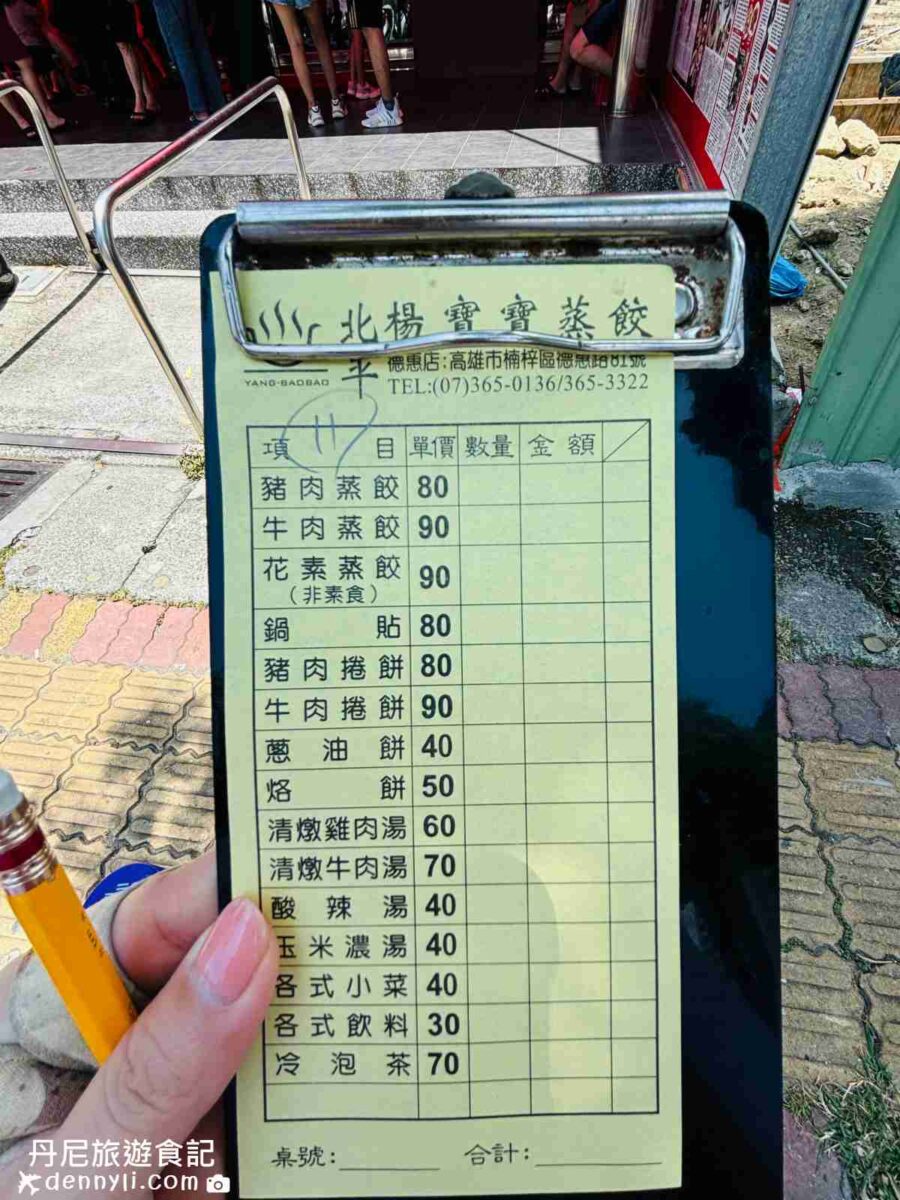 北平
楊寶寶蒸餃
YANG-BAOBAO
德惠店:高雄市楠梓區德惠路81號
TEL:(07)365-0136/365-3322
11
項目 單價 數量 金額
豬肉蒸餃 80
牛肉蒸餃 90
花素蒸餃 90
(非素食)
鍋貼 80
豬肉捲餅 80
牛肉捲餅 90
蔥油餅 40
烙餅 50
清燉雞肉湯 60
清燉牛肉湯 70
酸辣湯 40
玉米濃湯 40
各式小菜 40
各式飲料 30
冷泡茶 70
桌號: 合計:
丹尼旅遊食記
dennyli.com